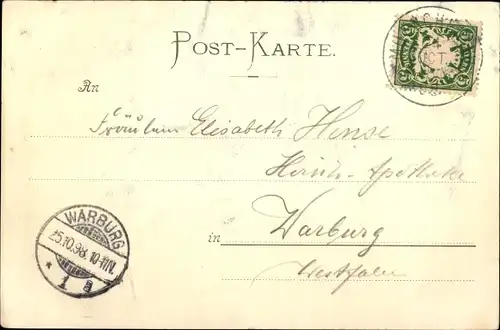 POST-KARTE.
An
Fräulein Elisabeth Hense
Hirsch-Apotheke
in Warburg
Westfalen
WARBURG
25.10.98. 10-11N.
* 1 a
5 5
5 5